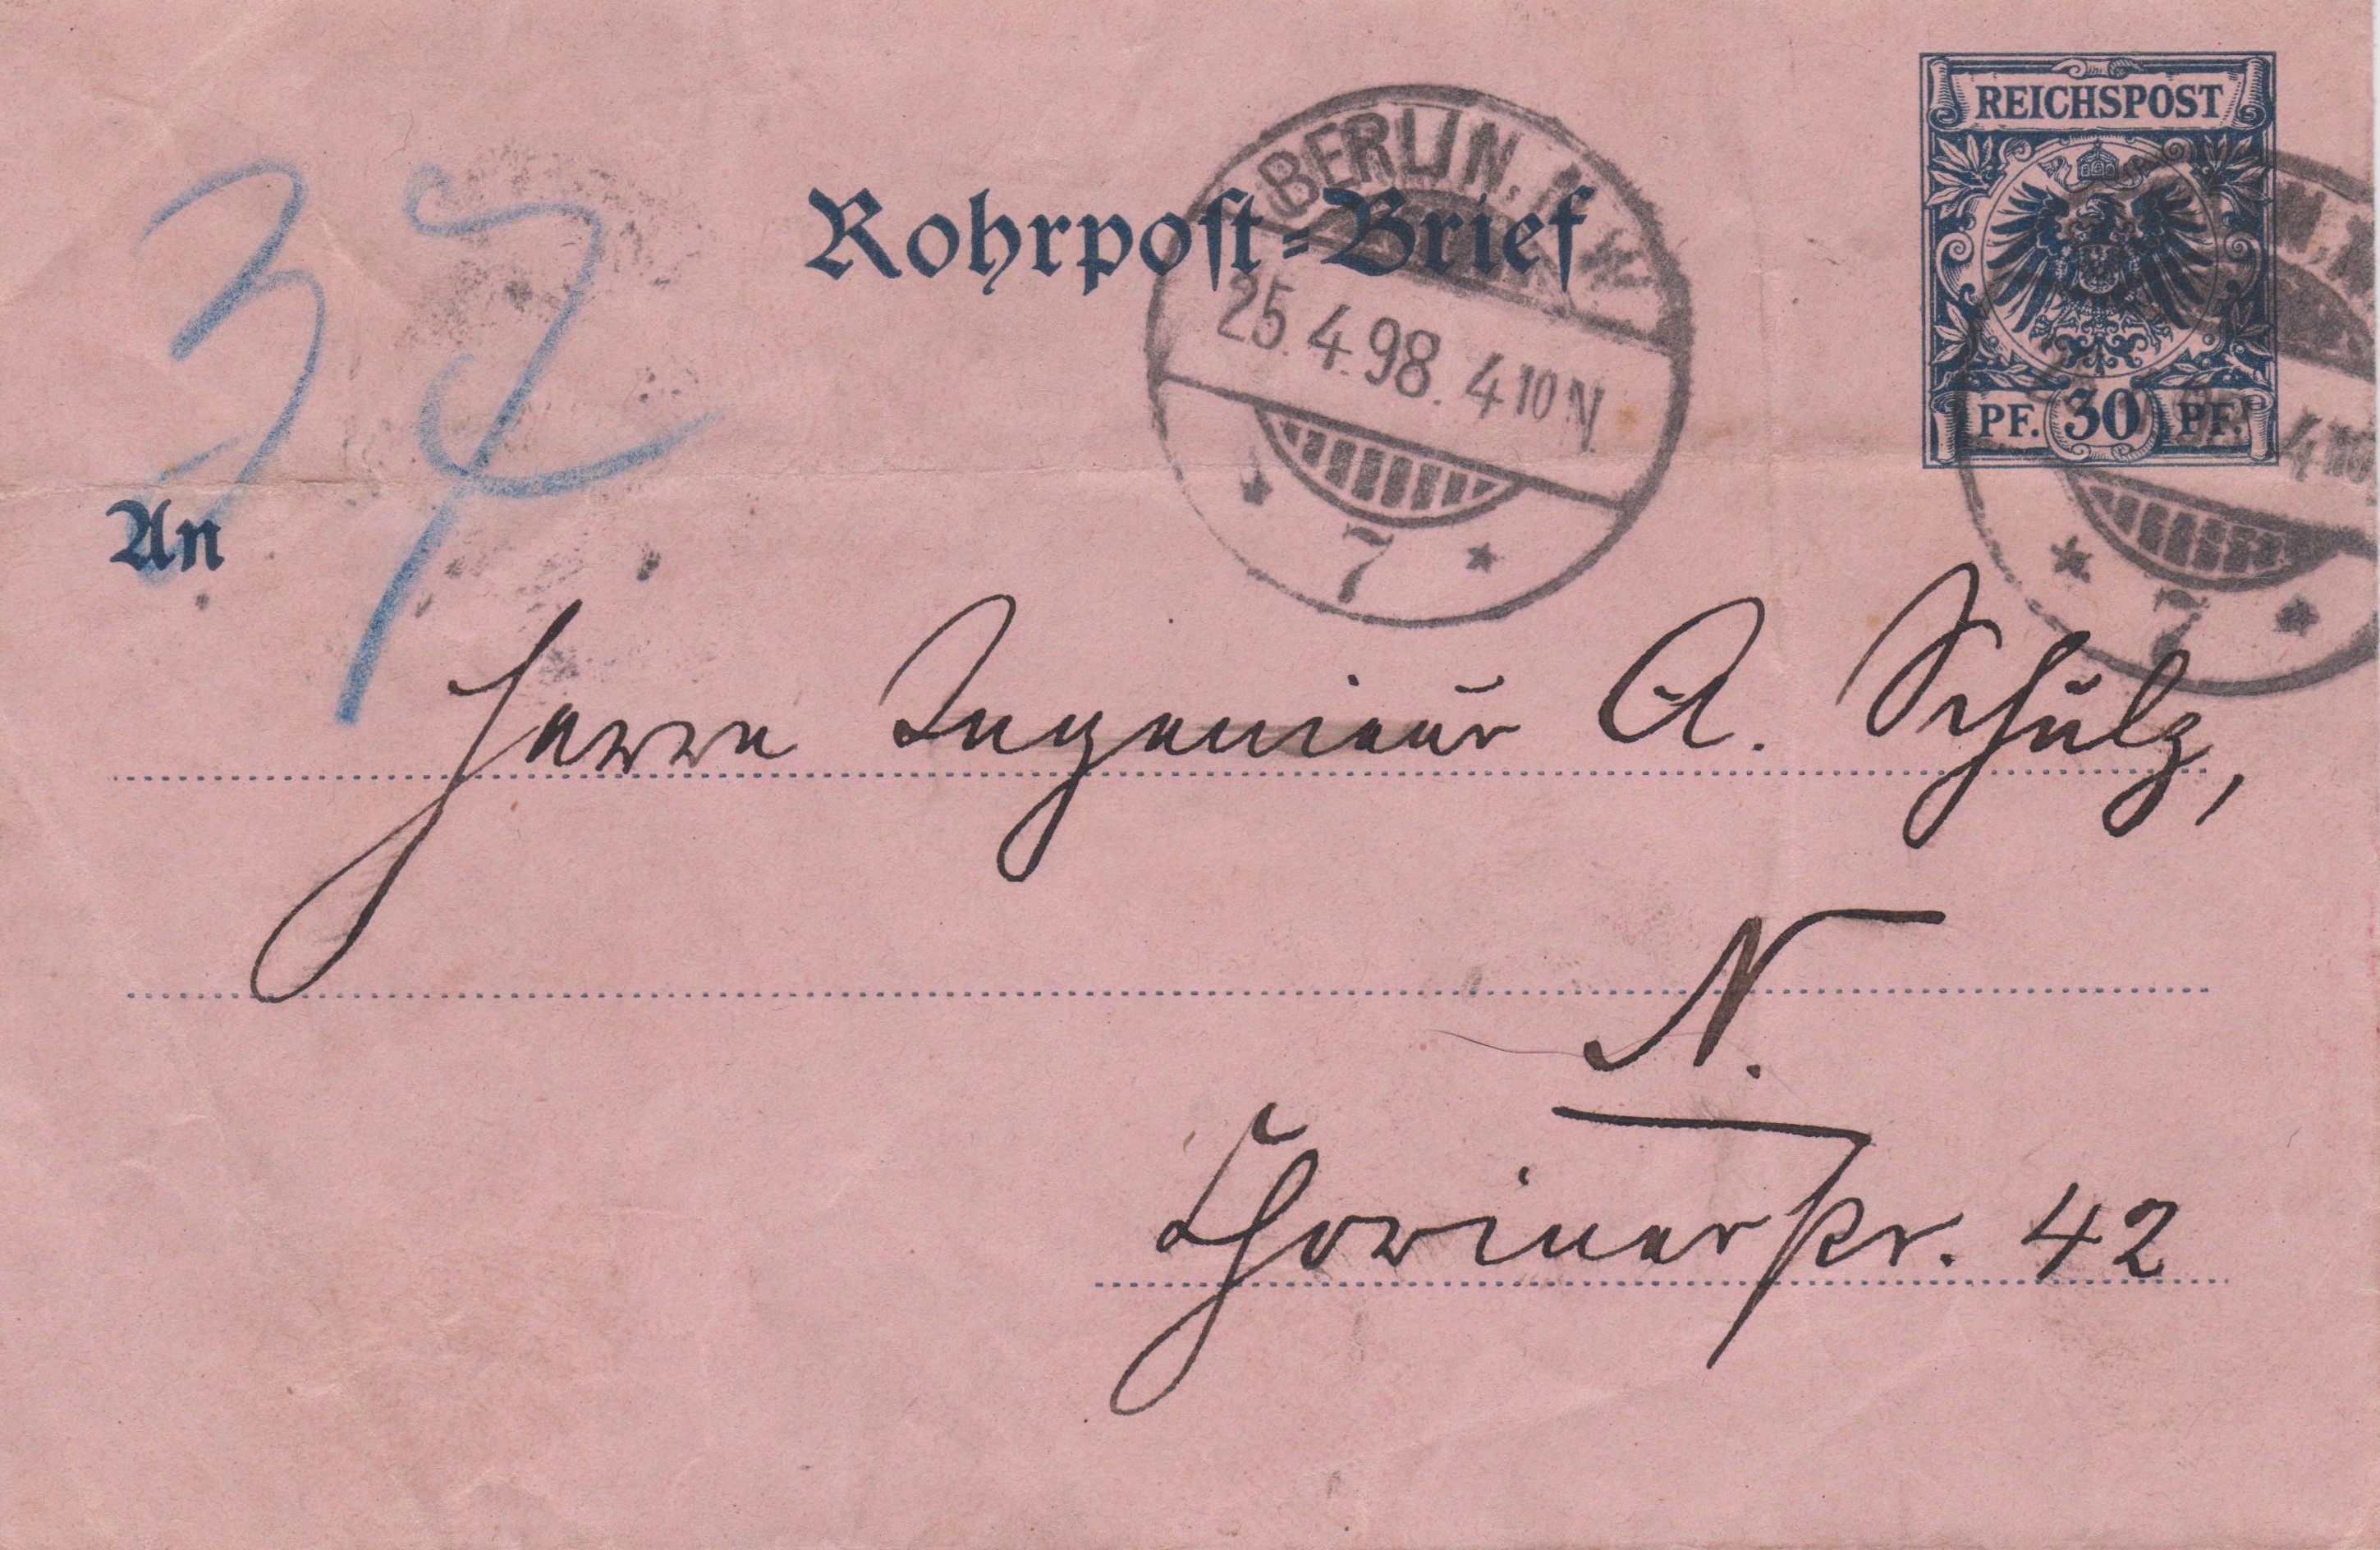 REICHSPOST
PF. 30 PF.
Rohrpost-Brief
BERLIN, N.W.
25.4.98. 4 10 N.
7
4 10
7
37
An
Herrn Ingenieur A. Schulz,
N.
Chorinerstr. 42